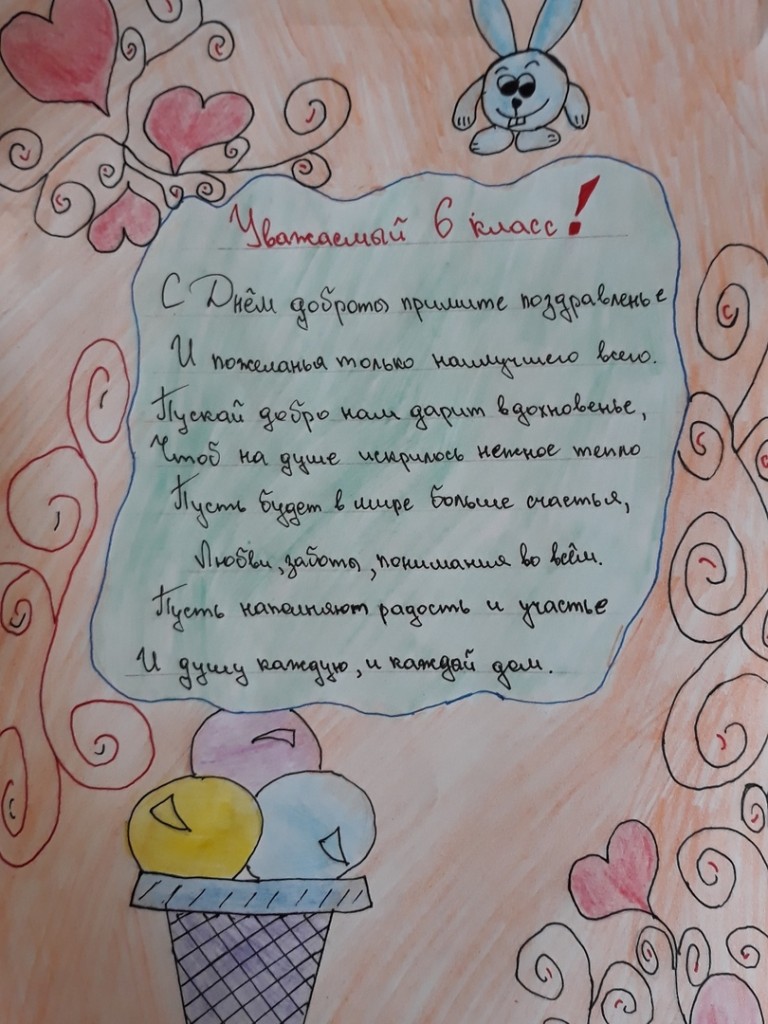 Уважаемый 6 класс!
С Днём доброты примите поздравленье
И пожеланья только наилучшего всего.
Пускай добро нам дарит вдохновенье,
Чтоб на душе искрилось нежное тепло
Пусть будет в мире больше счастья,
Любви, заботы, понимания во всём.
Пусть наполняют радость и участье
И душу каждую, и каждый дом.